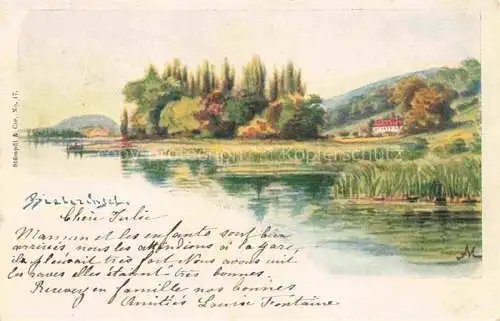 Stämpfli & Cie. No. 17.
Bielerinsel.
Chère Julie
Maman et les enfants sont bien
arrivés nous les attendions à la gare,
il pleuvait très fort. Nous avons cuit
les raves elles étaient très bonnes.
Recevez en famille nos bonnes
Amitiés Louise Fontaine.